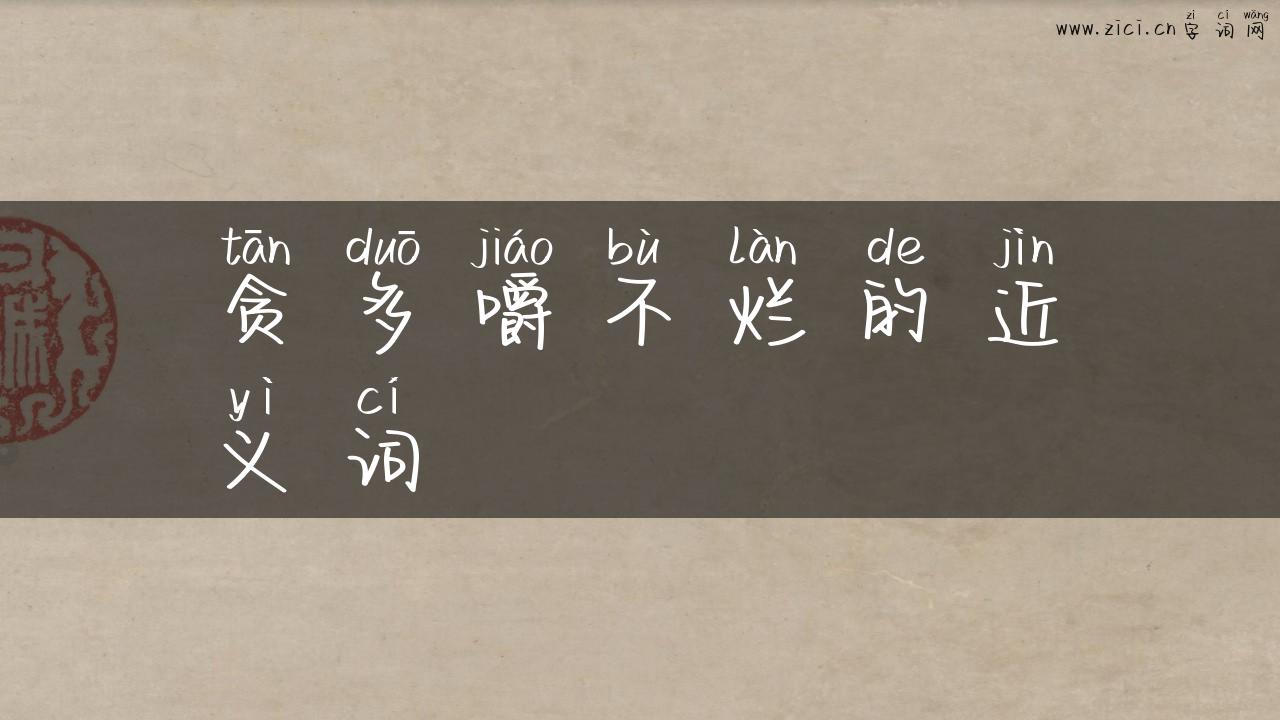 zì cí wǎng
www.zici.cn 字 词 网
tān duō jiáo bù làn de jìn
贪 多 嚼 不 烂 的 近
yì cí
义 词